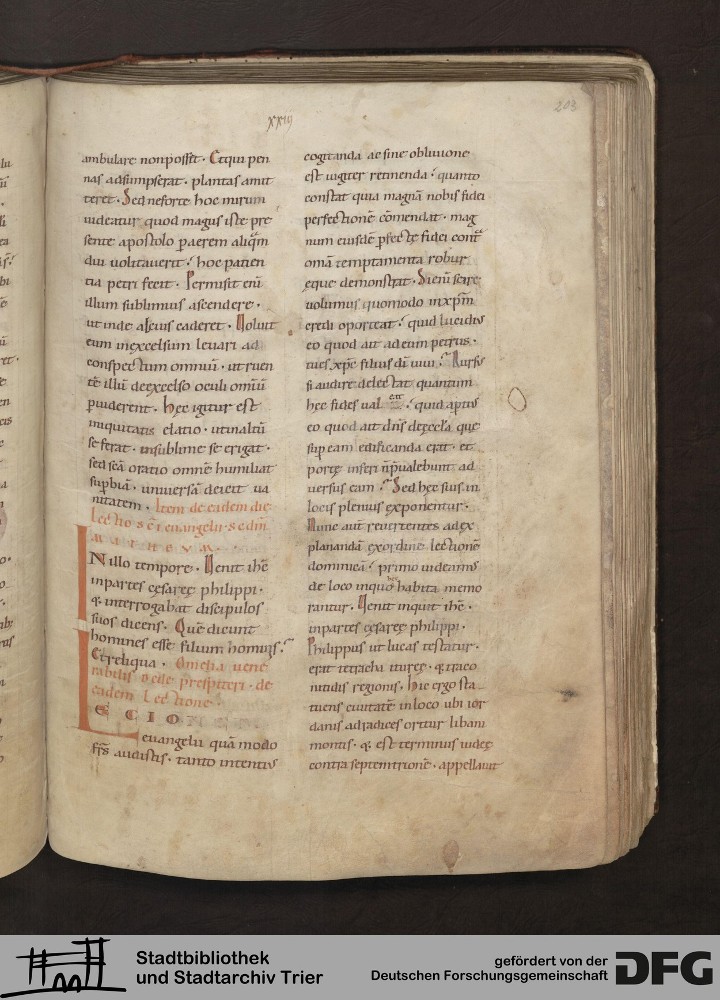 xxiij
203
ambulare non posset. Et qui pen
nas adsumpserat. plantas amit
teret. Sed ne forte hoc mirum
uideatur quod magus iste pre
sente apostolo p aerem aliqͣm
diu uolitauerit? hoc patien
tia petri fecit. Permisit enī
illum sublimius ascendere.
ut inde alcius caderet. Uoluit
eum in excelsum leuari ad
conspectum omniū. ut ruen
tē illū de excelso oculi omiū
puiderent. hęc igitur est
iniquitatis elatio. ut in altū
se ferat. in sublime se erigat.
sed scā oratio omnē humiliat
supbiā. uniuersā deicit ua
nitatem. Item de eadem die
Lectio s̄c̄i euangelii sedm̄
MATHEVM.
IN illo tempore. Uenit ihē
in partes cęsaręę philippi.
q; interrogabat discipulos
suos dicens. Quē dicunt
homines esse filium hominis?
Et reliqua. Omelia uene
rabilis bede presbiteri. de
eadem Lectione.
LECTIO
euangelii quā modo
frs audistis. tanto intentius
cogitanda ac sine obliuione
est iugiter retinenda? quanto
constat quia magnā nobis fidei
perfectionē cōmendat. mag
num eiusdē pfectę fidei contͣ
omā temptamenta robur
eque demonstrat. Si enī scire
uolumus quomodo in xp̄m
credi oporteat? quid lucidius
eo quod ait ad eum petrus.
tu es xp̄c filius dī uiui? Rursū
si audire delectat quantum
hęc fides ual&? quid aptius
eo quod ait dn̄s de ęccła que
sup eam edificanda erat. et
portę inferi n̄ pualebunt ad
uersus eam? Sed hęc suis in
locis plenius exponentur.
Nunc aut reuertentes ad ex
planandā ex ordine lectionē
dominicā? primo uideamus
de loco in quo hęc habita memo
rantur. Uenit inquit ihē.
in partes cęsaręę philippi.
Philippus ut lucas testatur.
erat tetracha itureę. q; traco
nitidis regionis. hic ergo sta
tuens ciuitatē in loco ubi ior
danis ad radices oritur libani
montis. q; est terminus iudeę
contra septemtrionē. appellauit
Stadtbibliothek
und Stadtarchiv Trier
gefördert von der
Deutschen Forschungsgemeinschaft
DFG